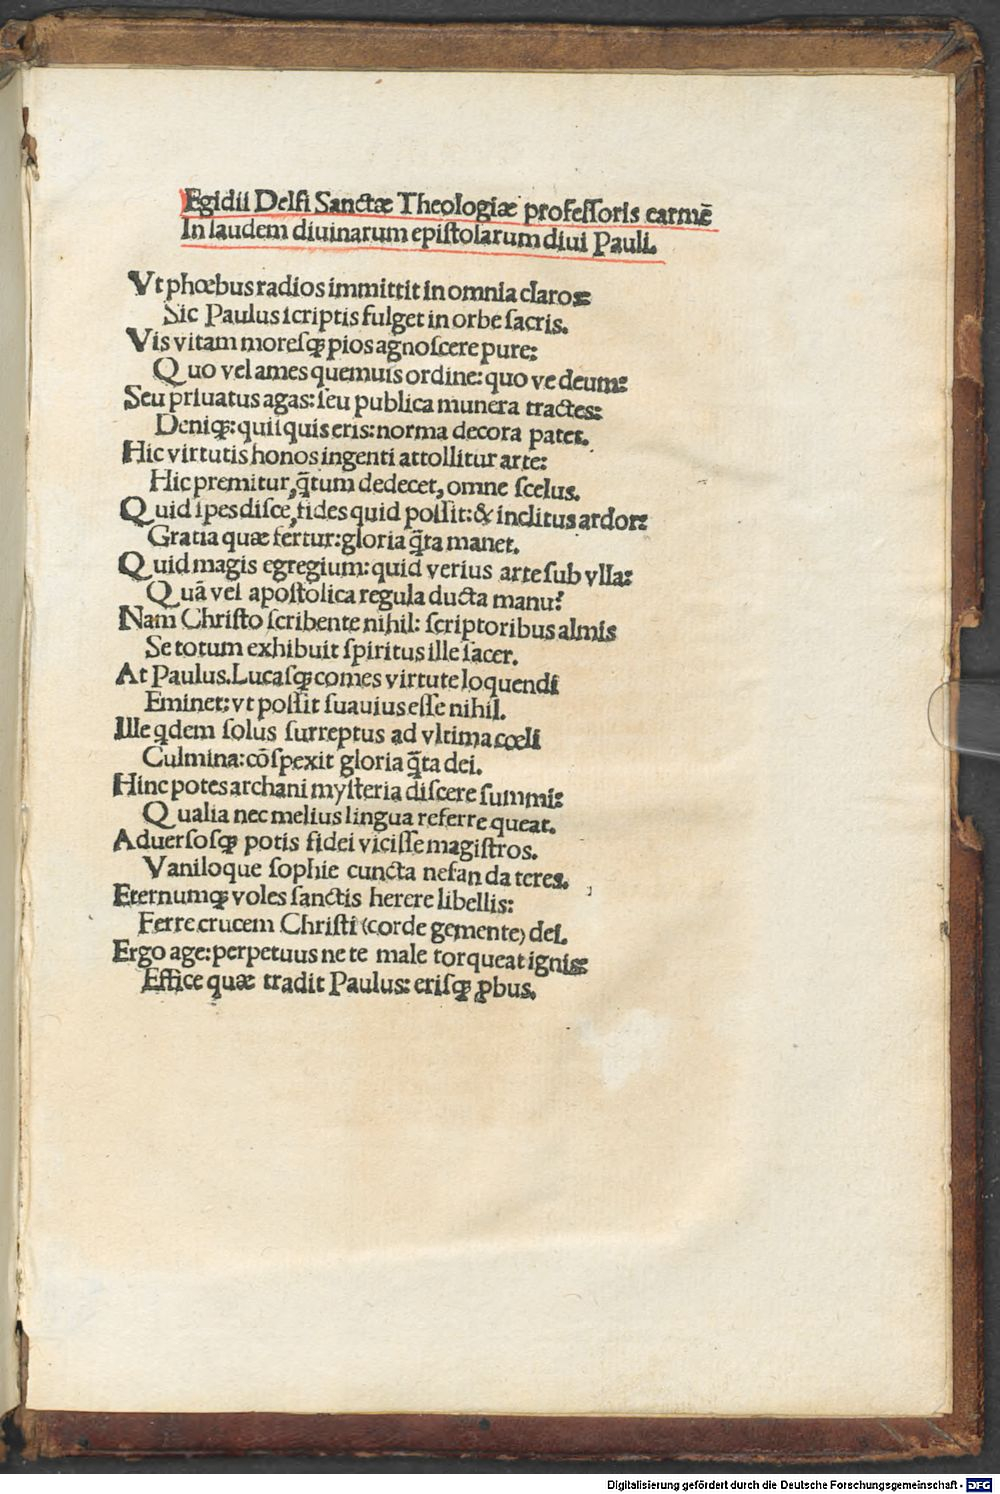 Egidii Delfi Sanctæ Theologiæ professoris carmẽ
In laudem diuinarum epistolarum diui Pauli.
Vt phœbus radios immittit in omnia claros:
Sic Paulus scriptis fulget in orbe sacris.
Vis vitam moresqꝫ pios agnoscere pure:
Quo vel ames quemuis ordine: quo ve deum:
Seu priuatus agas: seu publica munera tractes:
Deniqꝫ: quisquis eris: norma decora patet.
Hic virtutis honos ingenti attollitur arte:
Hic premitur, q̃tum dedecet, omne scelus.
Quid spes disce, fides quid possit: & inclitus ardor:
Gratia quæ fertur: gloria q̃ta manet.
Quid magis egregium: quid verius arte sub vlla:
Quã vel apostolica regula ducta manu?
Nam Christo scribente nihil: scriptoribus almis
Se totum exhibuit spiritus ille sacer.
At Paulus. Lucasqꝫ comes virtute loquendi
Eminet: vt possit suauius esse nihil.
Ille qdem solus surreptus ad vltima cœli
Culmina: cõspexit gloria q̃ta dei.
Hinc potes archani mysteria discere summi:
Qualia nec melius lingua referre queat.
Aduersosqꝫ potis fidei vicisse magistros.
Vaniloque sophie cuncta nefanda teres.
Eternumqꝫ voles sanctis herere libellis:
Ferre crucem Christi (corde gemente) dei.
Ergo age: perpetuus ne te male torqueat ignis:
Effice quæ tradit Paulus: erisqꝫ ꝓbus.
Digitalisierung gefördert durch die Deutsche Forschungsgemeinschaft - DFG